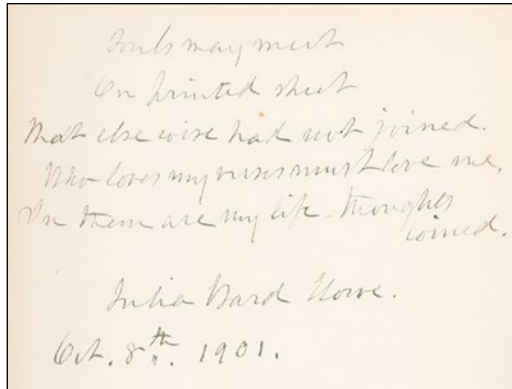 Souls may meet
On printed sheet
That else wise had not joined.
Who loves my verses must love me,
In them are my life-thoughts
coined.
Julia Ward Howe.
Oct. 8th. 1901.